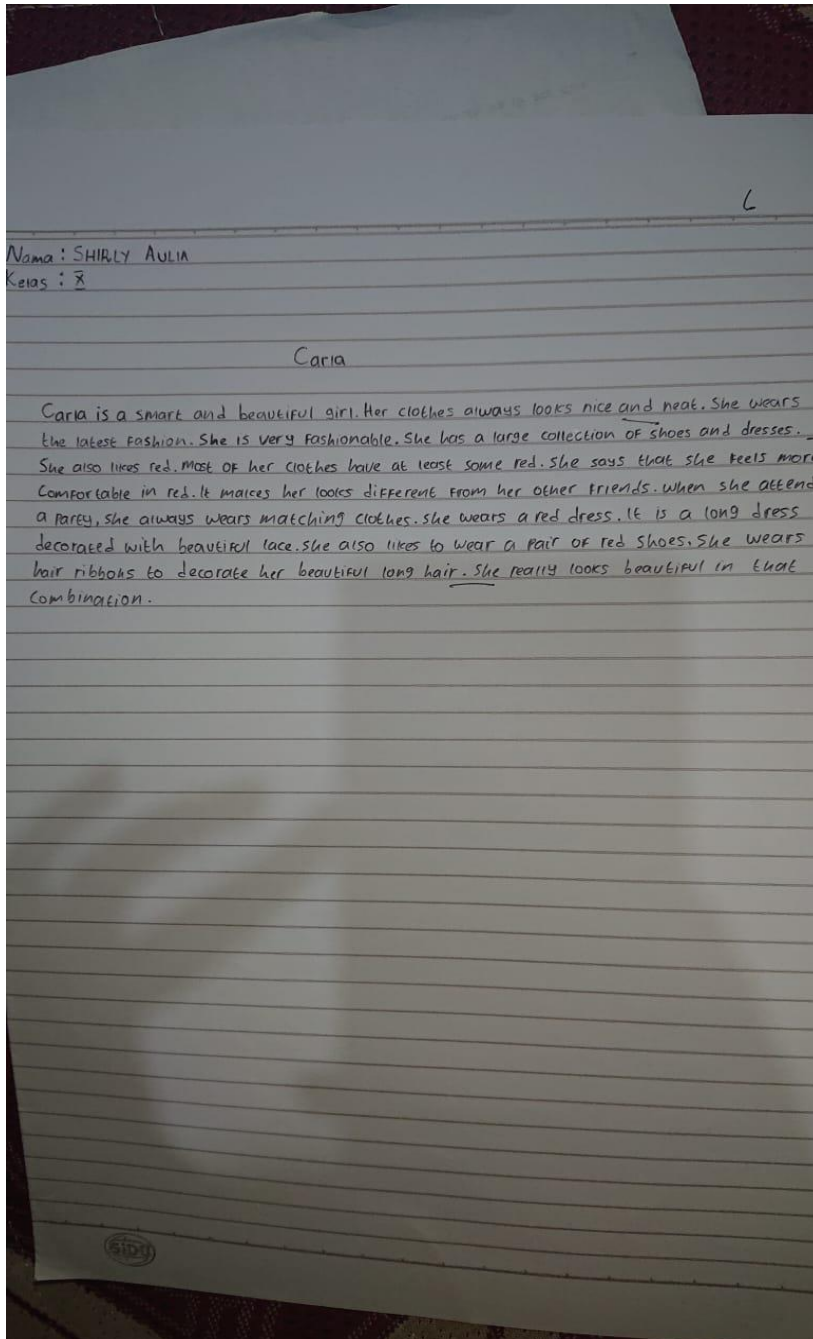 L
Nama : SHIRLY AULIA
Kelas : X
Carla
Carla is a smart and beautiful girl. Her clothes always looks nice and neat. She wears
the latest fashion. She is very fashionable. She has a large collection of shoes and dresses.
She also likes red. most of her clothes have at least some red. she says that she feels mor
Comfortable in red. It makes her looks different from her other friends. when she attend
a party, she always wears matching clothes. she wears a red dress. It is a long dress
decorated with beautiful lace. she also likes to wear a pair of red shoes. She wears
hair ribbons to decorate her beautiful long hair. She really looks beautiful in that
Combination.
SIDU